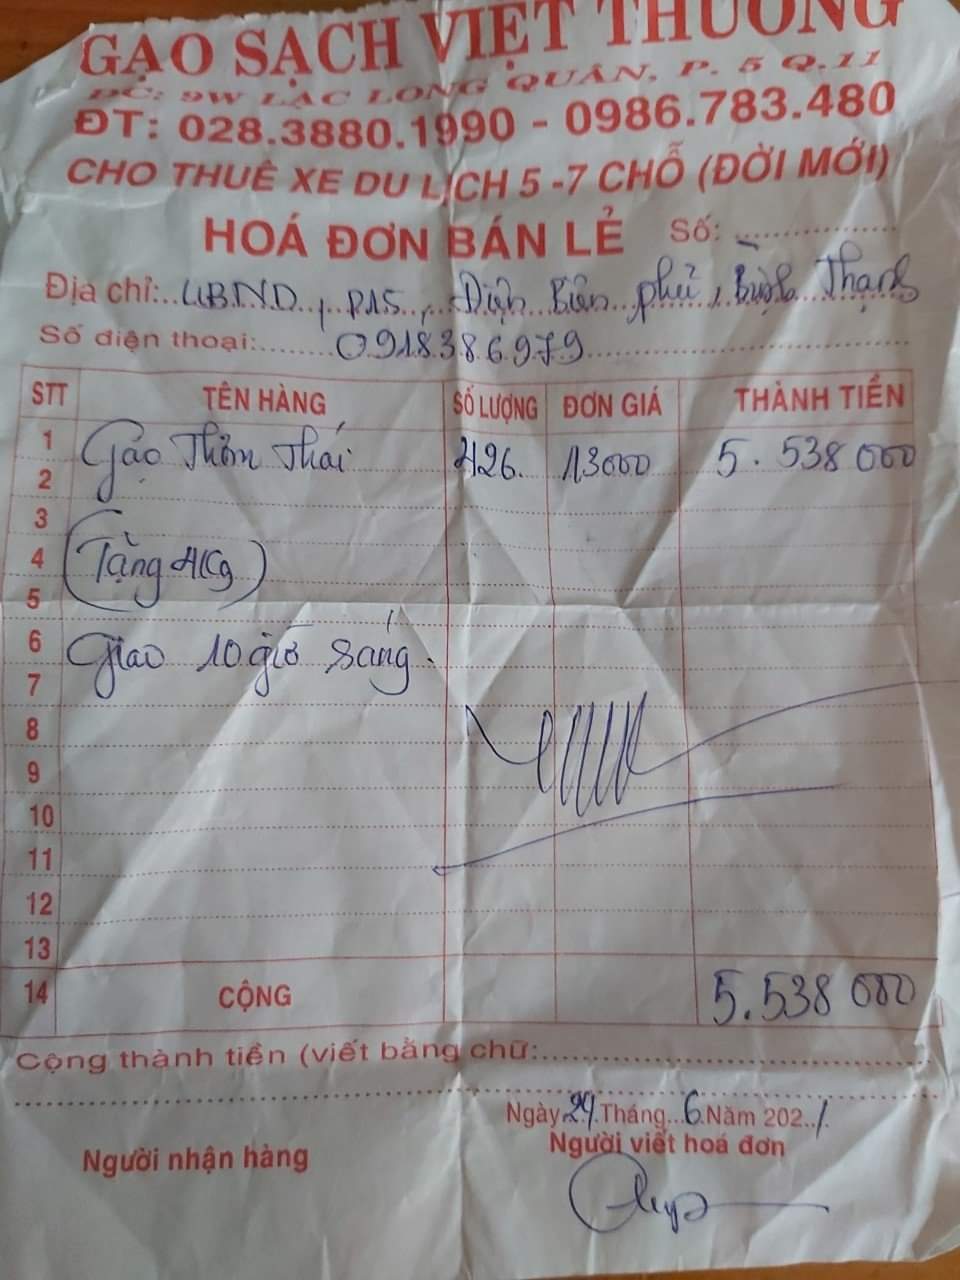 GẠO SẠCH VIỆT THƯƠNG
ĐC: 9W LẠC LONG QUÂN, P. 5 Q.11
ĐT: 028.3880.1990 - 0986.783.480
CHO THUÊ XE DU LỊCH 5 -7 CHỖ (ĐỜI MỚI)
HOÁ ĐƠN BÁN LẺ Số:
Địa chỉ: UBND, P15, Điện Biên phủ, Bình Thạnh
Số điện thoại: 0918386979
STT TÊN HÀNG SỐ LƯỢNG ĐƠN GIÁ THÀNH TIỀN
1 Gạo Thơm Thái 426. 13000 5.538 000
2
3
4 (Tặng 4Kg)
5
6 Giao 10 giờ sáng.
7
8
9
10
11
12
13
14 CỘNG 5.538 000
Cộng thành tiền (viết bằng chữ:
Ngày 29 Tháng 6 Năm 2021
Người nhận hàng Người viết hoá đơn